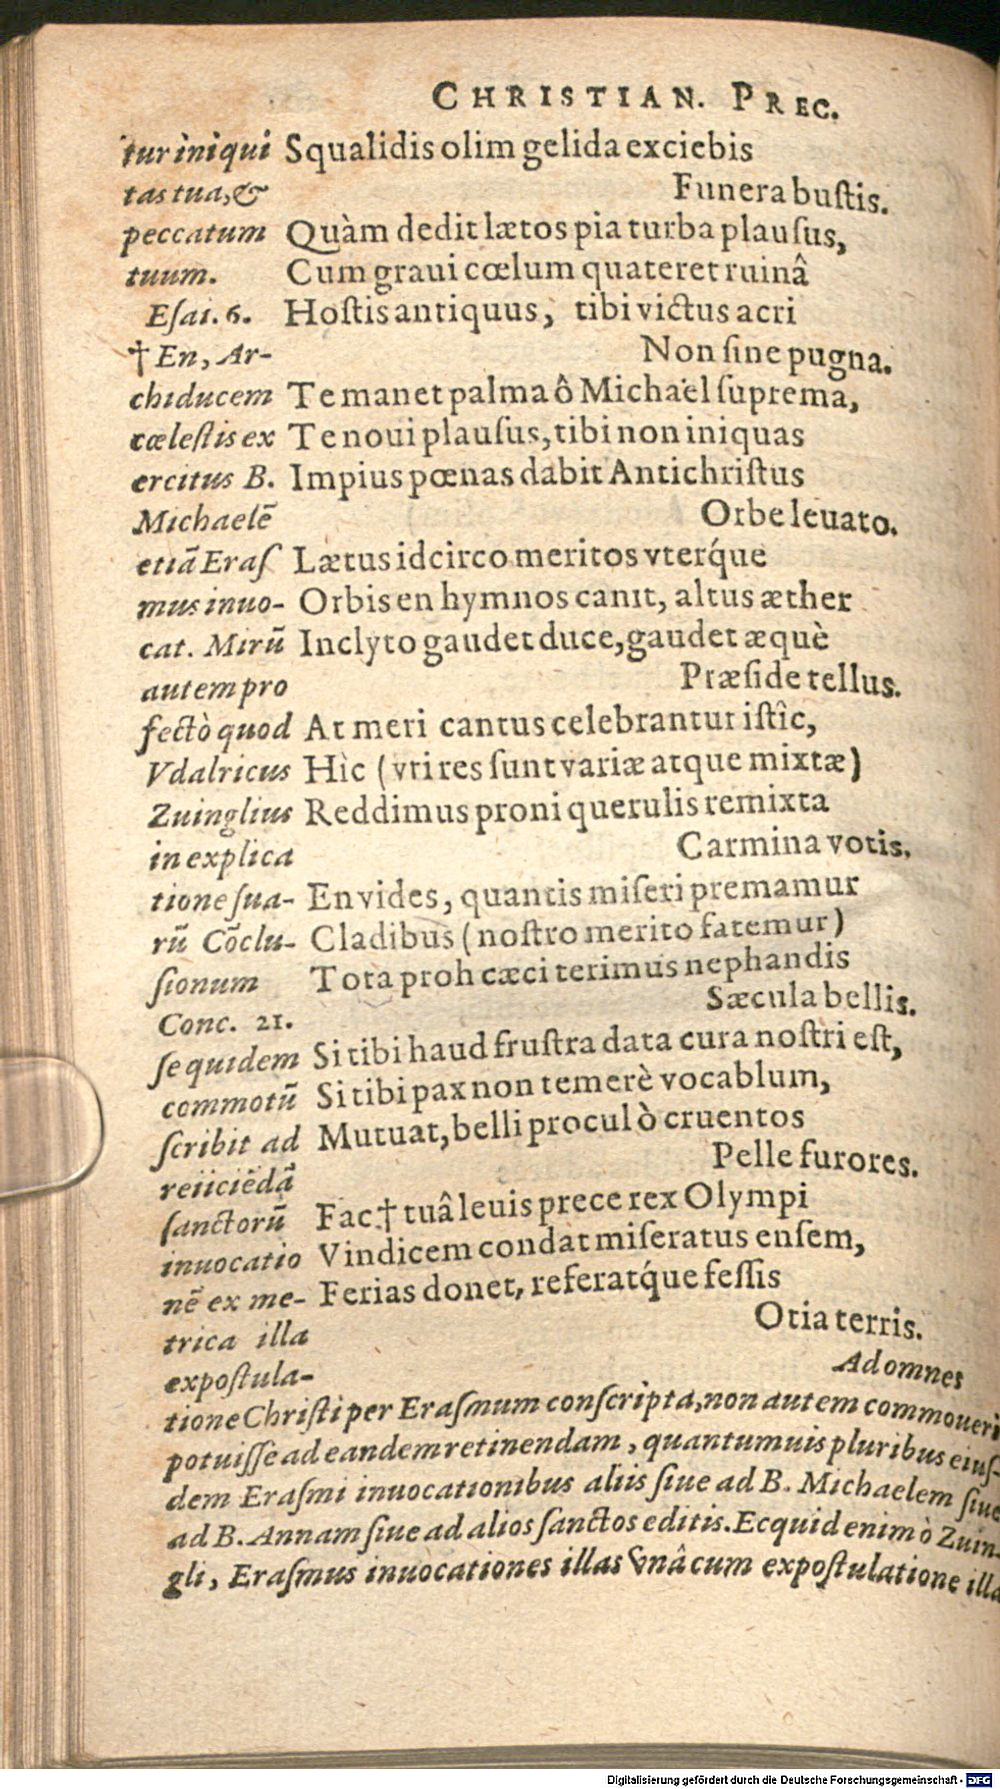 CHRISTIAN. PREC.
Squalidis olim gelida exciebis
Funera bustis.
Quàm dedit lætos pia turba plausus,
Cum graui cœlum quateret ruinâ
Hostis antiquus, tibi victus acri
Non sine pugna.
Te manet palma ô Michaël suprema,
Te noui plausus, tibi non iniquas
Impius pœnas dabit Antichristus
Orbe leuato.
Lætus idcirco meritos vterq́ue
Orbis en hymnos canit, altus æther
Inclyto gaudet duce, gaudet æquè
Præside tellus.
At meri cantus celebrantur istîc,
Hìc (vti res sunt variæ atque mixtæ)
Reddimus proni querulis remixta
Carmina votis.
En vides, quantis miseri premamur
Cladibus (nostro merito fatemur)
Tota proh cæci terimus nephandis
Sæcula bellis.
Si tibi haud frustra data cura nostri est,
Si tibi pax non temerè vocablum,
Mutuat, belli procul ò cruentos
Pelle furores.
Fac † tuâ leuis prece rex Olympi
Vindicem condat miseratus ensem,
Ferias donet, referatq́ue fessis
Otia terris.
Ad omnes
tur iniqui
tas tua, &
peccatum
tuum.
Esai. 6.
† En, Ar-
chiducem
cœlestis ex
ercitus B.
Michaelẽ
etiã Eras
mus inuo-
cat. Mirũ
autem pro
fectò quod
Vdalricus
Zuinglius
in explica
tione sua-
rũ Cõclu-
sionum
Conc. 21.
se quidem
commotũ
scribit ad
reiiciẽdã
sanctorũ
inuocatio
nẽ ex me-
trica illa
expostula-
tione Christi per Erasmum conscripta, non autem commoueri
potuisse ad eandem retinendam, quantumuis pluribus eius-
dem Erasmi inuocationibus aliis siue ad B. Michaelem siue
ad B. Annam siue ad alios sanctos editis. Ecquid enim ò Zuin-
gli, Erasmus inuocationes illas vnâ cum expostulatione illa
Digitalisierung gefördert durch die Deutsche Forschungsgemeinschaft - DFG